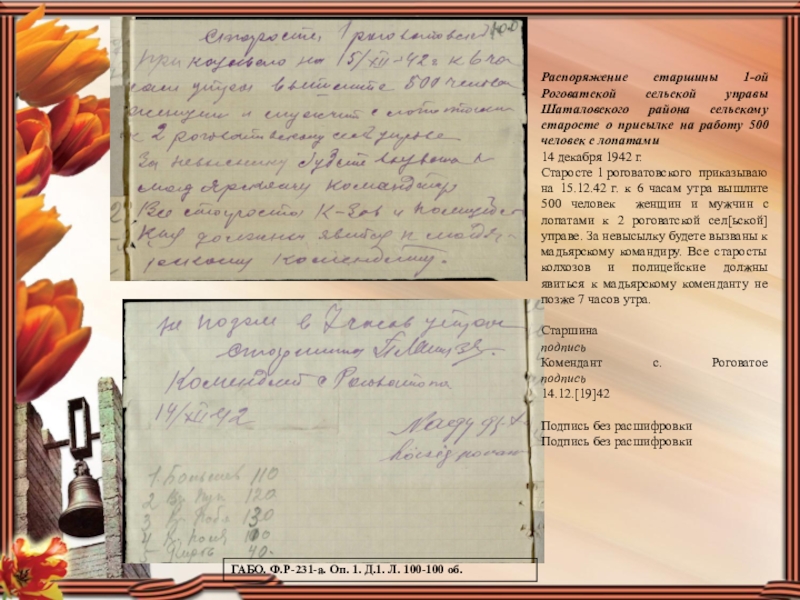 Старосте 1 роговатовск 100
приказываю на 15/XII-42 г к 6 ча
сам утра вышлите 500 челов
женщин и мужчин с лопатами
к 2 роговатскому сел управе
За невысылку будете вызваны к
мадярскому командир
Все старосты К-зов и полицейс
кие должны явится к мадя-
рскому Коменданту.
не подзн в 7 часов утра
старшина
Комендант с Роговатова
14/XII 42
Nagy
1 110
2 120
3 130
4 100
5 40-
ГАБО. Ф.Р-231-а. Оп. 1. Д.1. Л. 100-100 об.
Распоряжение старшины 1-ой
Роговатской сельской управы
Шаталовского района сельскому
старосте о присылке на работу 500
человек с лопатами
14 декабря 1942 г.
Старосте 1 роговатовского приказываю
на 15.12.42 г. к 6 часам утра вышлите
500 человек женщин и мужчин с
лопатами к 2 роговатской сел[ьской]
управе. За невысылку будете вызваны к
мадьярскому командиру. Все старосты
колхозов и полицейские должны
явиться к мадьярскому коменданту не
позже 7 часов утра.
Старшина
подпись
Комендант с. Роговатое
подпись
14.12.[19]42
Подпись без расшифровки
Подпись без расшифровки